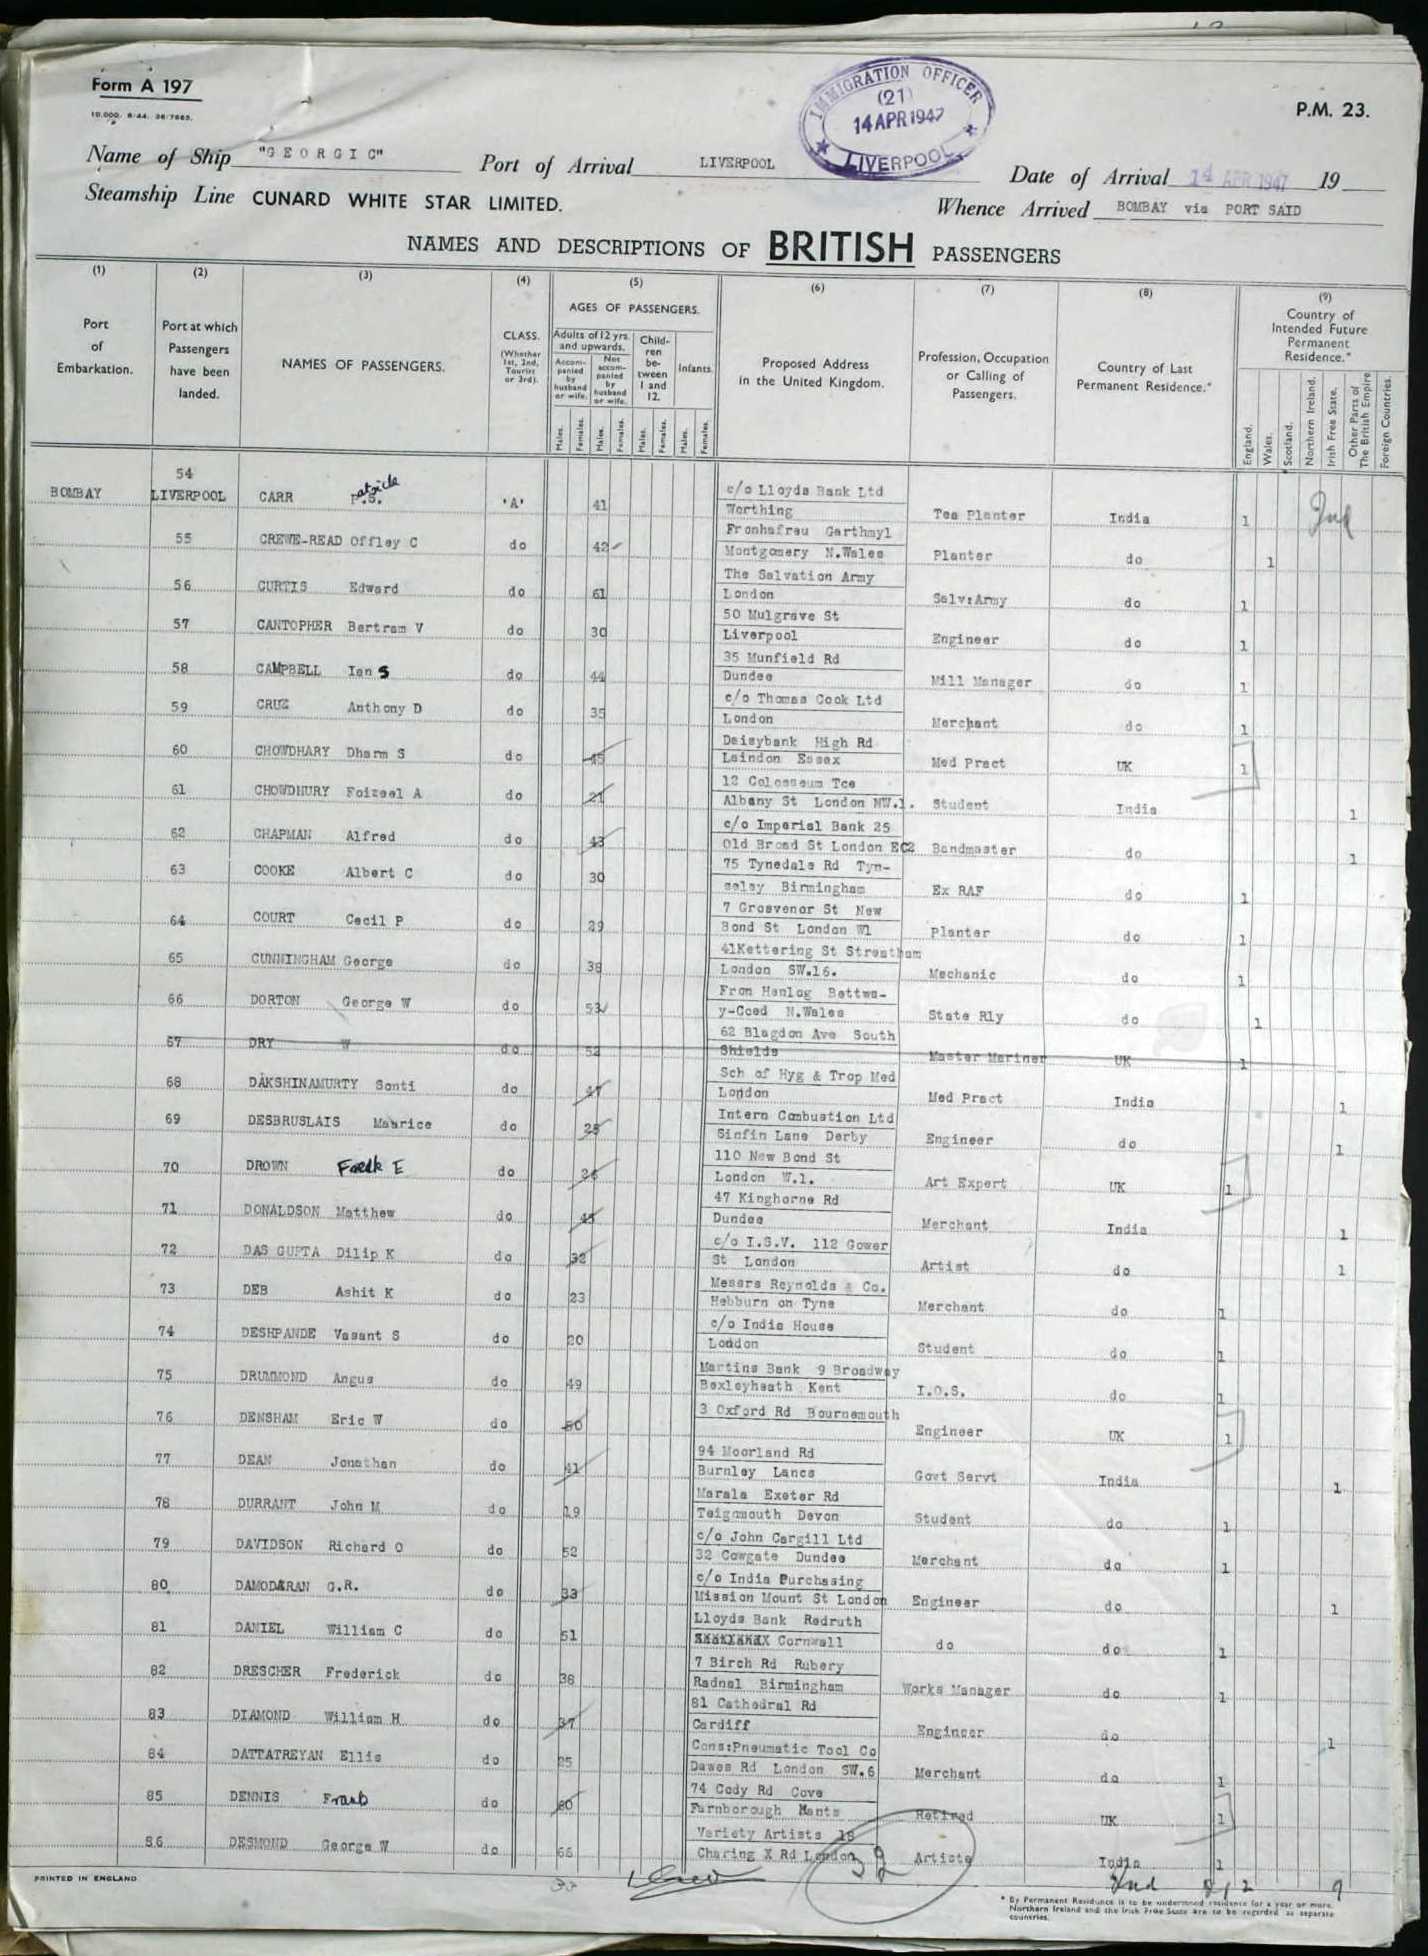 Form A 197
10,000. 8/44. 26/7665.
IMMIGRATION OFFICER
(21)
14 APR 1947
LIVERPOOL
P.M. 23.
Name of Ship "GEORGIC" Port of Arrival LIVERPOOL Date of Arrival 14 APR 1947 19
Steamship Line CUNARD WHITE STAR LIMITED. Whence Arrived BOMBAY via PORT SAID
NAMES AND DESCRIPTIONS OF BRITISH PASSENGERS
(1) (2) (3) (4) (5) (6) (7) (8) (9)
Port of Embarkation.
Port at which Passengers have been landed.
NAMES OF PASSENGERS.
CLASS. (Whether 1st, 2nd, Tourist or 3rd).
AGES OF PASSENGERS.
Adults of 12 yrs. and upwards.
Accompanied by husband or wife.
Not accompanied by husband or wife.
Children between 1 and 12.
Infants.
Males. Females. Males. Females. Males. Females. Males. Females.
Proposed Address in the United Kingdom.
Profession, Occupation or Calling of Passengers.
Country of Last Permanent Residence.*
Country of Intended Future Permanent Residence.*
England. Wales. Scotland. Northern Ireland. Irish Free State. Other Parts of The British Empire. Foreign Countries.
BOMBAY 54 LIVERPOOL CARR P.S. Patrick 'A' 41 c/o Lloyds Bank Ltd Worthing Tea Planter India 1 2nd
55 CREWE-READ Offley C do 42 Fronhafreu Garthmyl Montgomery N.Wales Planter do 1
56 CURTIS Edward do 61 The Salvation Army London Salv:Army do 1
57 CANTOPHER Bertram V do 30 50 Mulgrave St Liverpool Engineer do 1
58 CAMPBELL Ian S do 44 35 Munfield Rd Dundee Mill Manager do 1
59 CRUZ Anthony D do 35 c/o Thomas Cook Ltd London Merchant do 1
60 CHOWDHARY Dharm S do 45 Daisybank High Rd Laindon Essex Med Pract UK 1
61 CHOWDHURY Foizeel A do 21 12 Colosseum Tce Albany St London NW.1. Student India 1
62 CHAPMAN Alfred do 43 c/o Imperial Bank 25 Old Broad St London EC2 Bandmaster do 1
63 COOKE Albert C do 30 75 Tynedale Rd Tyn-seley Birmingham Ex RAF do 1
64 COURT Cecil P do 29 7 Grosvenor St New Bond St London W1 Planter do 1
65 CUNNINGHAM George do 38 41Kettering St Streatham London SW.16. Mechanic do 1
66 DORTON George W do 53 Fron Henlog Bettws-y-Coed N.Wales State Rly do 1
67 DRY W do 52 62 Blagdon Ave South Shields Master Mariner UK 1
68 DAKSHINAMURTY Santi do 47 Sch of Hyg & Trop Med London Med Pract India 1
69 DESBRUSLAIS Maurice do 25 Intern Combustion Ltd Sinfin Lane Derby Engineer do 1
70 DROWN Fredk E do 26 110 New Bond St London W.1. Art Expert UK 1
71 DONALDSON Matthew do 45 47 Kinghorne Rd Dundee Merchant India 1
72 DAS GUPTA Dilip K do 32 c/o I.S.V. 112 Gower St London Artist do 1
73 DEB Ashit K do 23 Messrs Reynolds & Co. Hebburn on Tyne Merchant do 1
74 DESHPANDE Vasant S do 20 c/o India House London Student do 1
75 DRUMMOND Angus do 49 Martins Bank 9 Broadway Bexleyheath Kent I.O.S. do 1
76 DENSHAM Eric W do 50 3 Oxford Rd Bournemouth Engineer UK 1
77 DEAN Jonathan do 41 94 Moorland Rd Burnley Lancs Govt Servt India 1
78 DURRANT John M do 19 Marala Exeter Rd Teignmouth Devon Student do 1
79 DAVIDSON Richard O do 52 c/o John Cargill Ltd 32 Cowgate Dundee Merchant do 1
80 DAMODARAN G.R. do 33 c/o India Purchasing Mission Mount St London Engineer do 1
81 DANIEL William C do 51 Lloyds Bank Redruth Cornwall do do 1
82 DRESCHER Frederick do 38 7 Birch Rd Rubery Rednal Birmingham Works Manager do 1
83 DIAMOND William H do 37 81 Cathedral Rd Cardiff Engineer do 1
84 DATTATREYAN Ellis do 25 Cons:Pneumatic Tool Co Dawes Rd London SW.6 Merchant do 1
85 DENNIS Frank do 60 74 Cody Rd Cove Farnborough Hants Retired UK 1
86 DESMOND George W do 66 Variety Artists 18 Charing X Rd London Artiste India 1
32 2nd 9
PRINTED IN ENGLAND
* By Permanent Residence is to be understood residence for a year or more. Northern Ireland and the Irish Free State are to be regarded as separate countries.